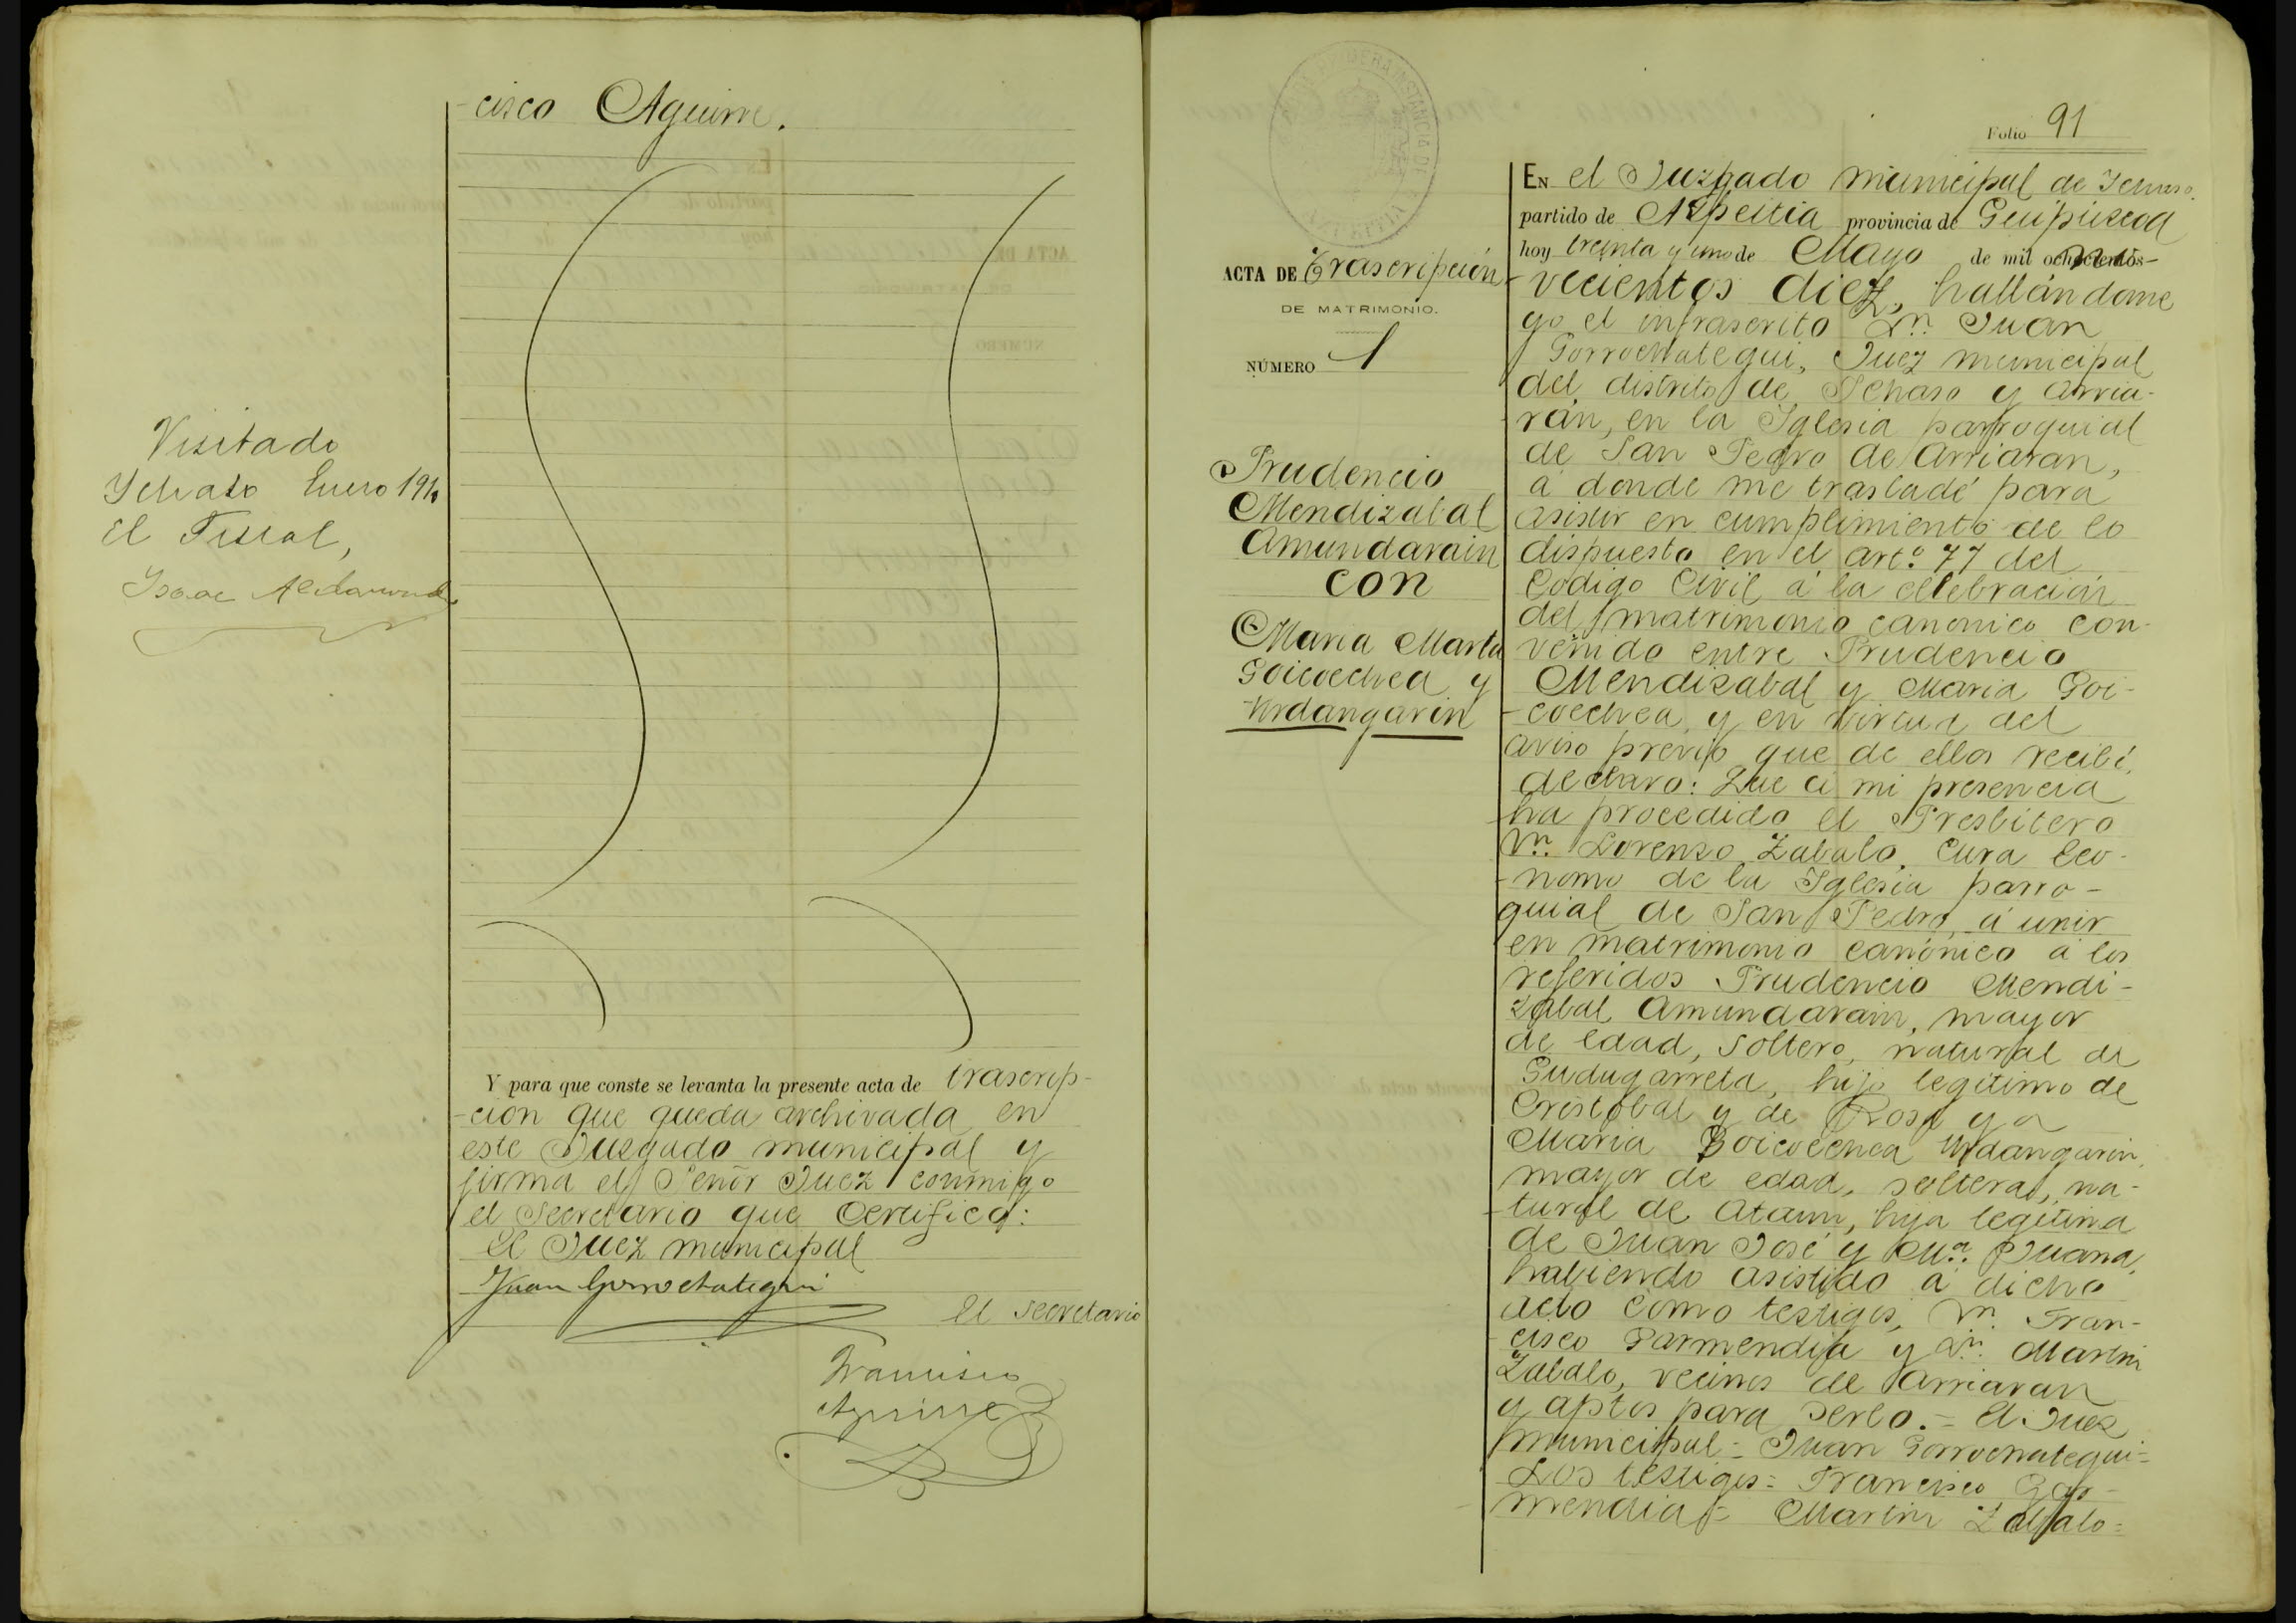 -cisco Aguirre.
Visitado
Ichaso Enero 191
El Fiscal,
Isaac
Y para que conste se levanta la presente acta de trascrip-
-cion que queda archivada en
este Juzgado municipal y
firma el Señor Juez conmigo
el Secretario que Certifico:
El Juez municipal
Juan Gorrochategui
El Secretario
Francisco
Aguirre
Folio 91
ACTA DE Trascripción
DE MATRIMONIO.
NÚMERO 1
Prudencio
Mendizabal
Amundarain
con
Maria Marta
Goicoechea y
Urdangarin
EN el Juzgado municipal de Ichaso.
partido de Azpeitia provincia de Guipúzcoa
hoy treinta y uno de Mayo de mil ochocientos no-
-vecientos diez, hallándome
yo el infrascrito Dn. Juan
Gorrochategui, Juez municipal
del distrito de Ichaso y Arria-
rán, en la Iglesia parroquial
de San Pedro de Arriaran,
á donde me trasladé para
asistir en cumplimiento de lo
dispuesto en el art.º 77 del
Codigo Civil á la cellebración
del matrimonio canonico con-
venido entre Prudencio
Mendizabal y Maria Goi-
-coechea, y en virtud del
aviso previo que de ellos recibí,
declaro: Que á mi presencia
ha procedido el Presbítero
Dn. Lorenzo Zabalo, Cura Eco-
-nomo de la Iglesia parro-
quial de San Pedro, á unir
en matrimonio canónico á los
referidos Prudencio Mendi-
zabal Amundarain, mayor
de edad, soltero, natural de
Gudugarreta, hijo legítimo de
Cristobal y de Rosa y a
Maria Goicoechea Urdangarin,
mayor de edad, soltera, na-
-tural de Ataun, hija legítima
de Juan José y Mª. Juana,
habiendo asistido á dicho
acto como testigos, Dn. Fran-
-cisco Garmendia y Dn. Martin
Zabalo, vecinos de Arriaran
y aptos para serlo.= El Juez
municipal= Juan Gorrochategui=
Los testigos= Francisco Gar-
mendia= Martin Zabalo=